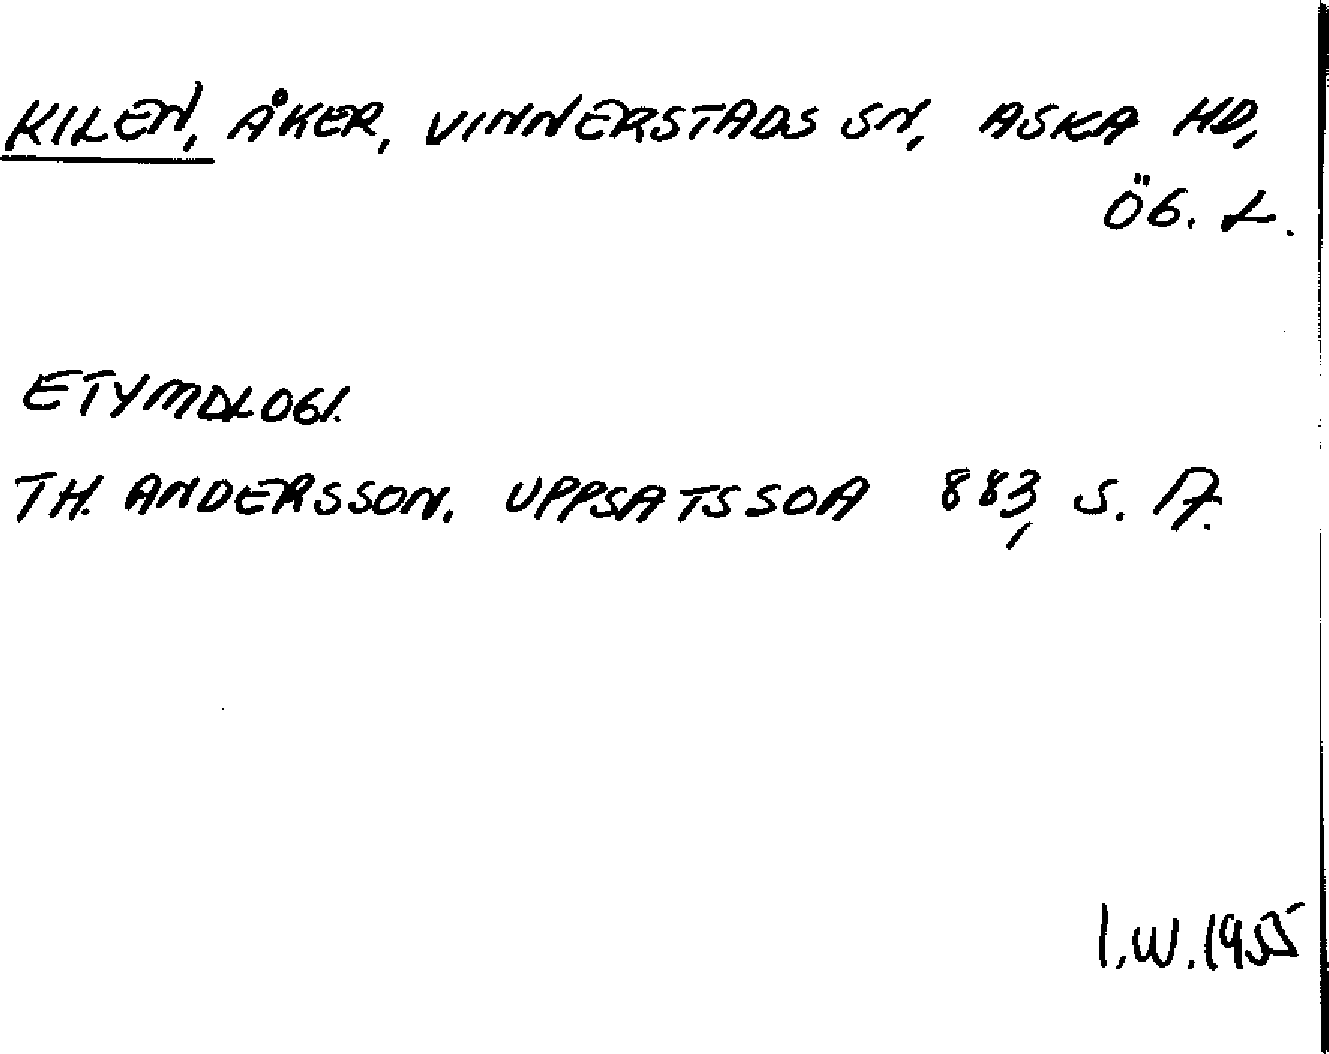 KILEN, ÅKER, VINNERSTADS SN, ASKA HD,
ÖG. L.
ETYMOLOGI.
TH. ANDERSSON. UPPSATS SOA 883, S. 17.
I.W. 1955